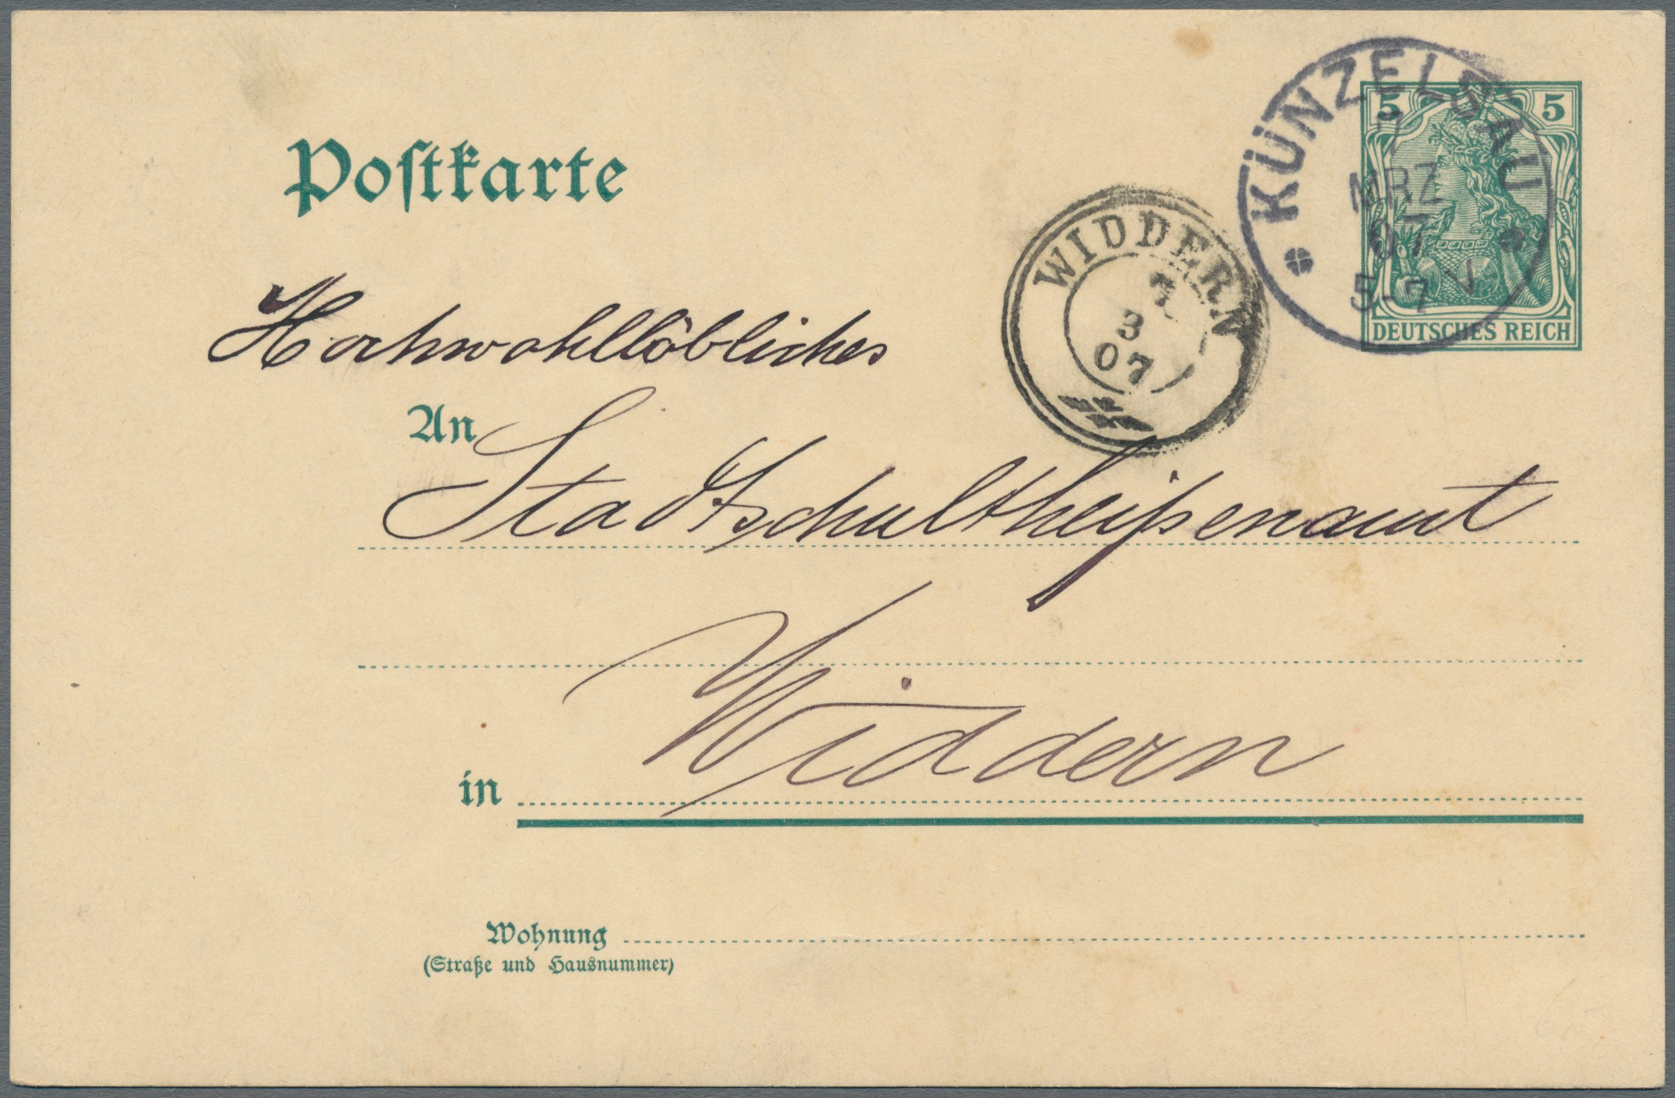 Postkarte
5 5
DEUTSCHES REICH
KÜNZELSAU
MRZ
07
5-7 V
WIDDERN
7
3
07
Hochwohllöbliches
An Stadtschultheißenamt
in Widdern
Wohnung
(Straße und Hausnummer)